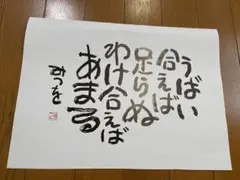 うばい
合えば
足らぬ
わけ合えば
あまる
みつを